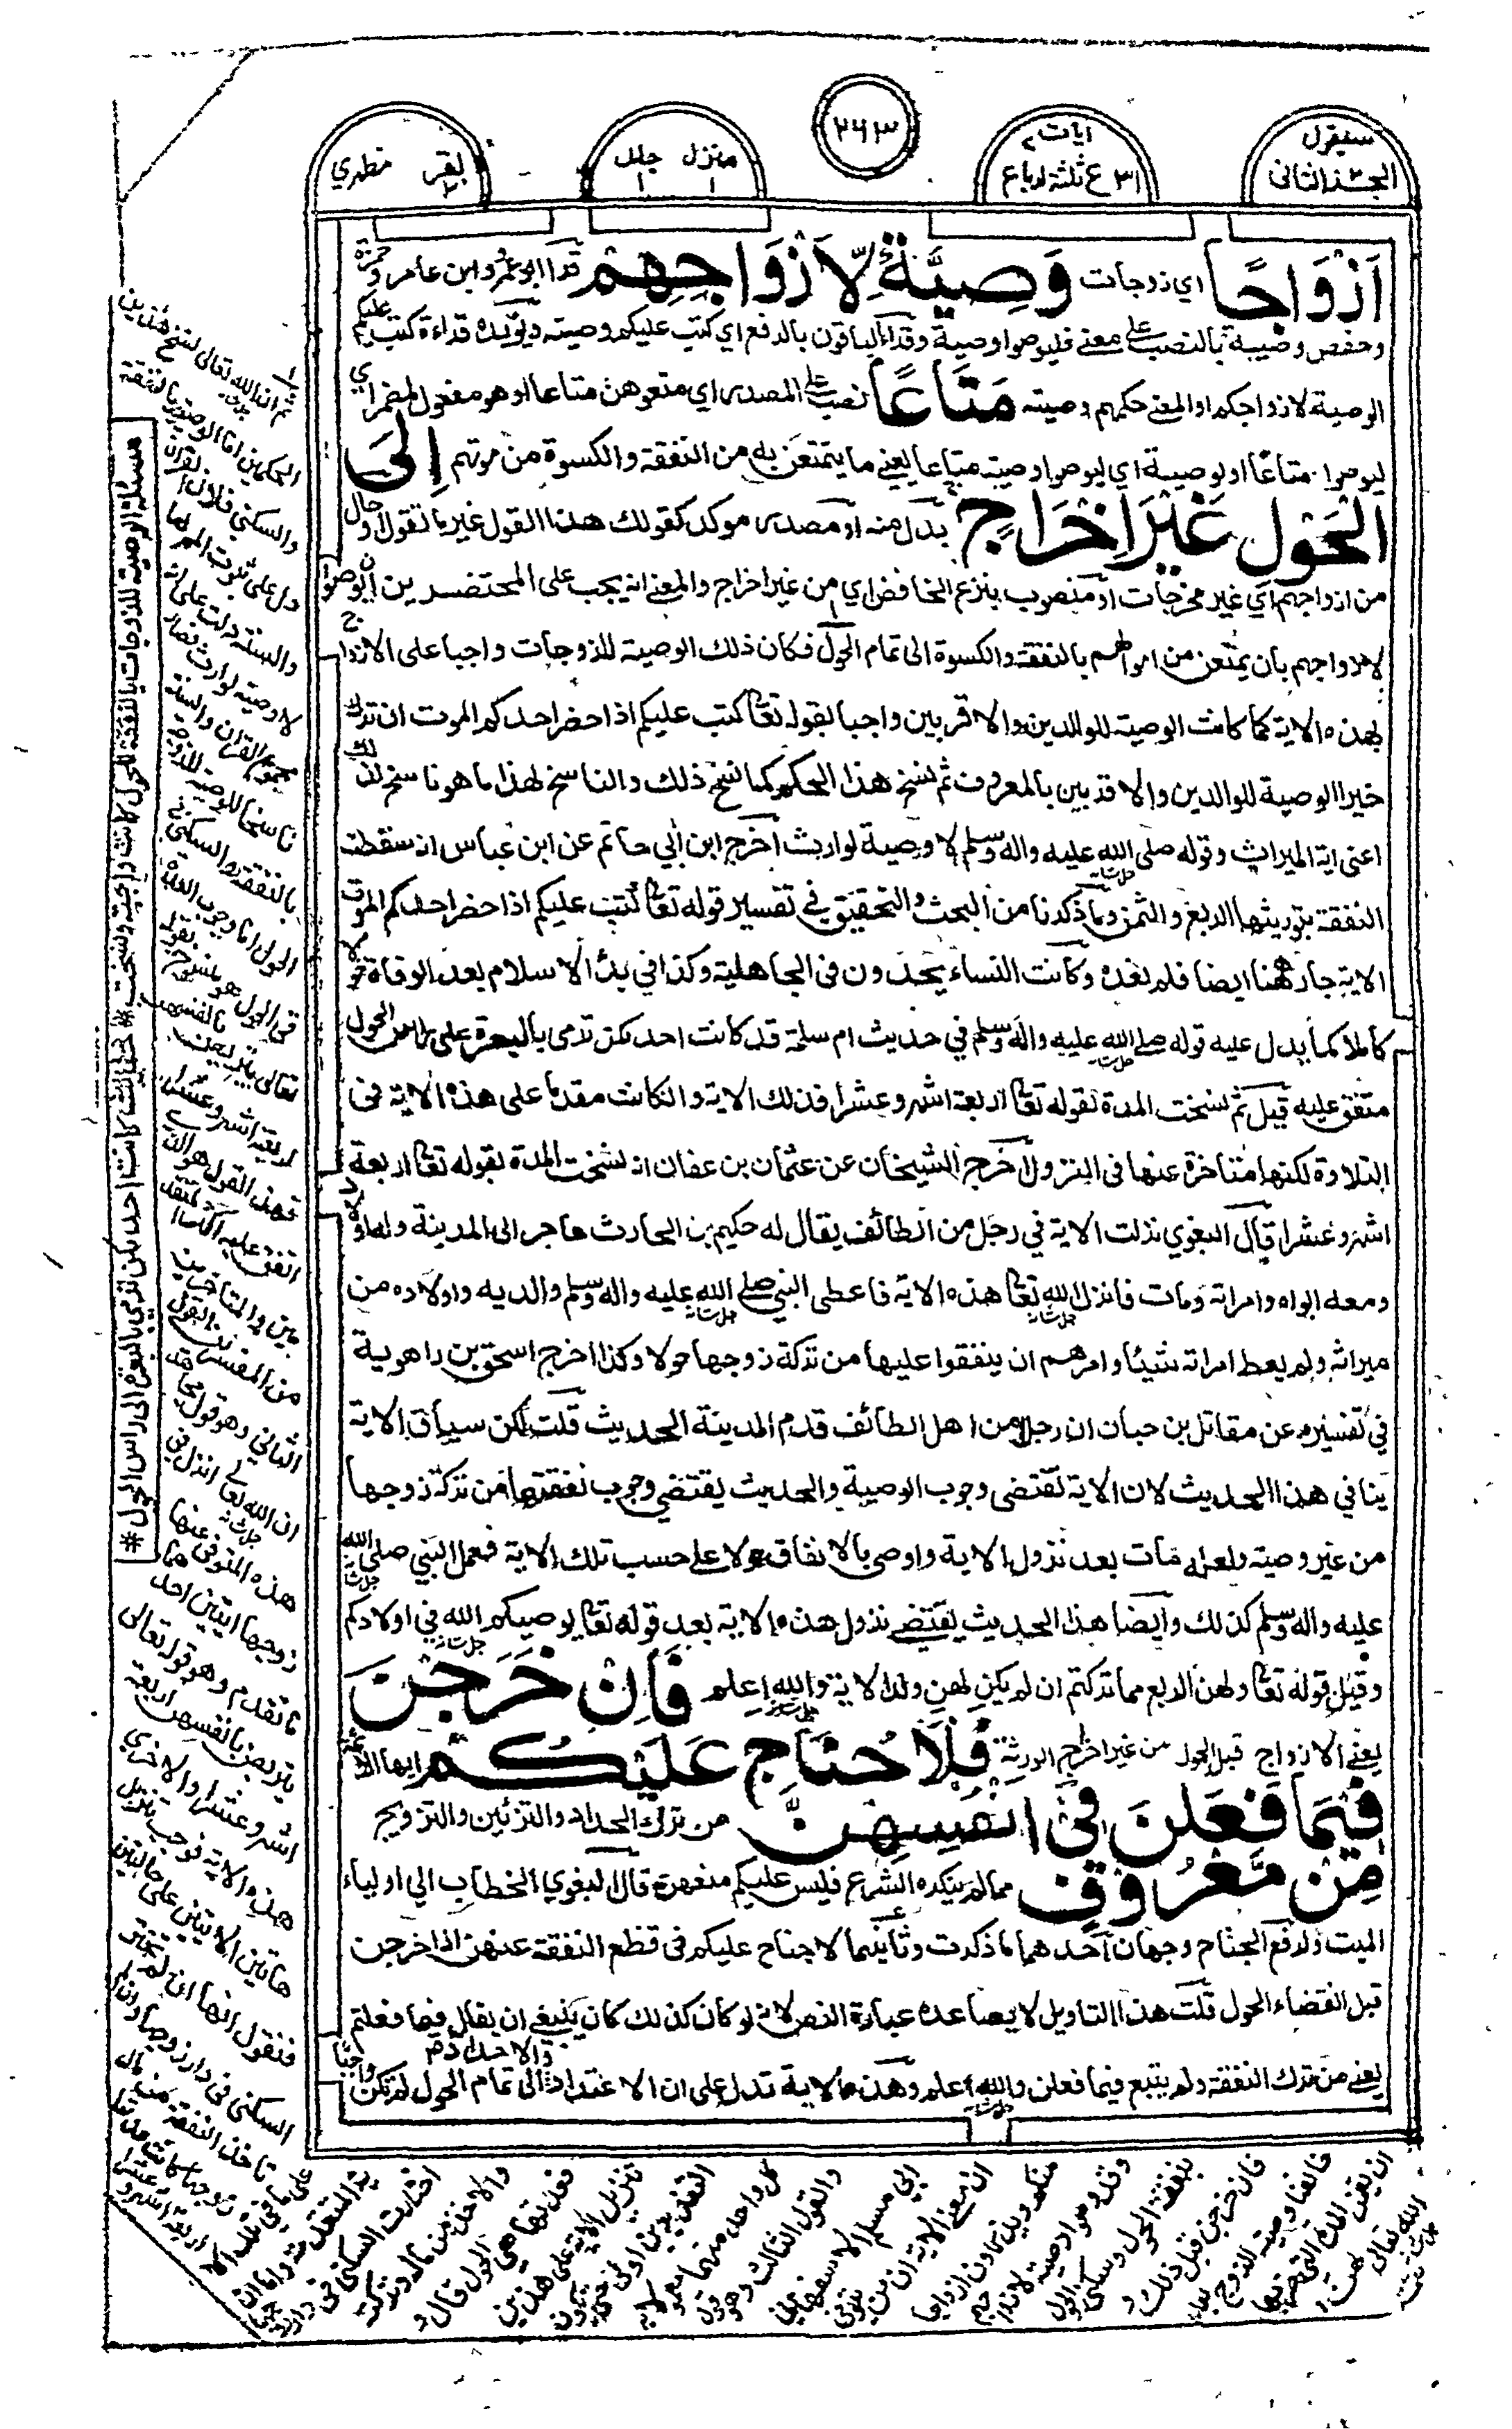 سيقول
الجزء الثانى
ايات
ع ثلثة ارباع ٣١
٢٤٣
منزل جلد
١ ١
بقر مظهري
٢
اَزْوَاجًا اي زوجات وَصِيَّةً لِّاَزْوَاجِهِمْ قرا ابو عمرو وابن عامر وحمزة
وحفص وصية بالنصب على معنى فليوصوا وصية وقرأ الباقون بالرفع اي كتب عليكم وصية ويؤيده قراءة كتب عليكم
الوصية لازواجكم او المعنى حكمهم وصية مَتَاعًا نصب على المصدر اي متعوهن متاعا او هو مفعول المضمر اي
ليوصوا متاعًا او لوصية اي ليوصوا وصية متاعا يعني ما يتمتعن به من النفقة والكسوة من موتهم اِلَى
الْحَوْلِ غَيْرَ اِخْرَاجٍ بدل منه او مصدر موكد كقولك هذا القول غير ما تقول او حال
من ازواجهم اي غير مخرجات او منصوب بنزع الخافض اي من غير اخراج والمعنى انه يجب على المحتضرين ان يوصوا
لازواجهم بان يمتعن من اموالهم بالنفقة والكسوة الى تمام الحول فكان ذلك الوصية للزوجات واجبا على الازواج
بهذه الاية كما كانت الوصية للوالدين والاقربين واجبا بقوله تعا كتب عليكم اذا حضر احدكم الموت ان ترك
خيرا الوصية للوالدين والاقربين بالمعروف ثم نسخ هذا الحكم كما نسخ ذلك والناسخ لهذا ما هو ناسخ لذلك
اعنى اية الميراث وقوله صلى الله عليه واله وسلم لا وصية لوارث اخرج ابن ابي حاتم عن ابن عباس انه سقطت
النفقة بتوريثها الربع والثمن وما ذكرنا من البحث والتحقيق في تفسير قوله تعا كتب عليكم اذا حضر احدكم الموت
الاية جار ههنا ايضا فلم نعده وكانت النساء يحددن فى الجاهلية وكذا في بدأ الاسلام بعد الوفاة حولا
كاملا كما يدل عليه قوله صلى الله عليه واله وسلم في حديث ام سلمة قد كانت احدكن ترمى بالبعرة على راس الحول
متفق عليه قيل ثم نسخت المدة بقوله تعا اربعة اشهر وعشرا فذلك الاية وان كانت مقدما على هذه الاية فى
التلاوة لكنها متاخرة عنها فى النزول اخرج الشيخان عن عثمان بن عفان انه نسخت المدة بقوله تعا اربعة
اشهر وعشرا قال البغوي نزلت الاية في رجل من الطائف يقال له حكيم بن الحارث هاجر الى المدينة وله اولاد
ومعه ابواه وامراته ومات فانزل الله تعا هذه الاية فاعطى النبي صلى الله عليه واله وسلم والديه واولاده من
ميراثه ولم يعط امراته شيئا وامرهم ان ينفقوا عليها من تركة زوجها حولا وكذا اخرج اسحق بن راهوية
في تفسيره عن مقاتل بن حبان ان رجلا من اهل الطائف قدم المدينة الحديث قلت لكن سياق الاية
ينافي هذا الحديث لان الاية تقتضى وجوب الوصية والحديث يقتضى وجوب نفقتها من تركة زوجها
من غير وصية ولعله مات بعد نزول الاية واوصى بالانفاق حولا على حسب تلك الاية فعمل النبي صلى الله
عليه واله وسلم كذلك وايضا هذا الحديث يقتضى نزول هذه الاية بعد قوله تعا يوصيكم الله في اولادكم
وقبل قوله تعا ولهن الربع مما تركتم ان لم يكن لهن ولد الاية والله اعلم فَاِنْ خَرَجْنَ
يعنى الازواج قبل الحول من غير اخراج الورثة فَلَا جُنَاحَ عَلَيْكُمْ ايها الائمة
فِيْمَا فَعَلْنَ فِيْ اَنْفُسِهِنَّ من ترك الحداد والتزئين والتزويج
مِنْ مَّعْرُوْفٍ مما لم ينكره الشرع فليس عليكم منعهن قال البغوي الخطاب الى اولياء
الميت ولرفع الجناح وجهان احدهما ما ذكرت وثانيهما لا جناح عليكم فى قطع النفقة عنهن اذا خرجن
قبل انقضاء الحول قلت هذا التاويل لا يصاعده عبارة النص لانه لو كان كذلك كان ينبغي ان يقال فيما فعلتم
يعنى من ترك النفقة ولم يتبع فيما فعلن والله اعلم وهذه الاية تدل على ان الاعتداد والاحداد الى تمام الحول لم تكن واجبًا
مسئلة الوصية للزوجات بالنفقة للحول كانت واجبة ونسخت
كانت احدكن ترمي بالبعرة الى راس الحول
ثم ان الله تعالى نسخ هذين
الحكمين اما الوصية بالنفقة
والسكنى فلان القران
دل على ثبوت الميراث لها
والسنة دلت على انه
لا وصية لوارث فصار
مجموع القران والسنة
ناسخا للوصية للزوجة
بالنفقة والسكنى في
الحول اما وجوب العدة
فى الحول هو منسوخ بقوله
تعالى يتربصن بانفسهن
اربعة اشهر وعشرا
فهذا القول هو الذي
اتفق عليه اكثر المتقد
مين والمتاخرين
من المفسرين القول
الثاني وهو قول مجاهد
ان الله تعالى انزل في
هذه المتوفى عنها
زوجها ايتين احدهما
ما تقدم وهو قوله تعالى
يتربصن بانفسهن اربعة
اشهر وعشرا والاخرى
هذه الاية فوجب تنزيل
هاتين الايتين على حالتين
فنقول انها ان لم تختر
السكنى في دار زوجها